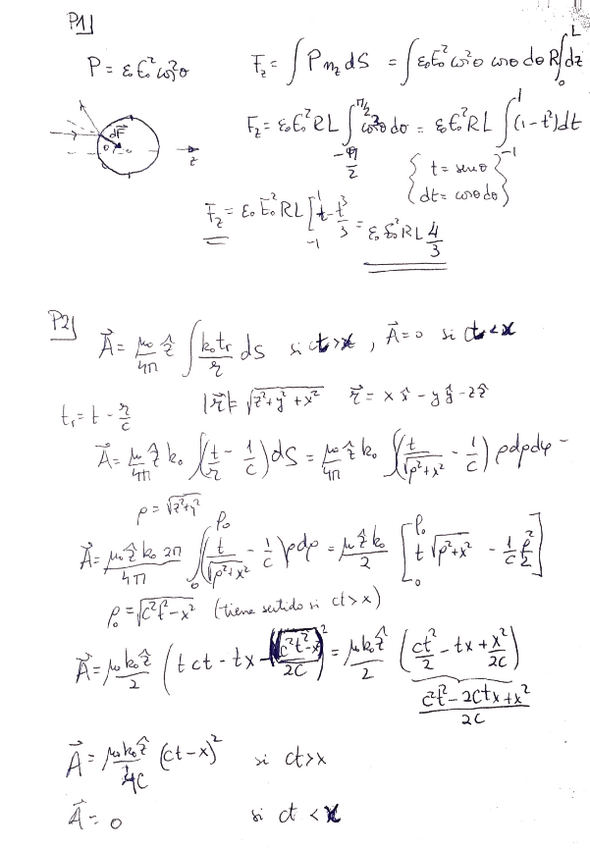 P1]
P = ε₀E₀² cos²θ    F_z = ∫ P n_z dS = ∫ ε₀E₀² cos²θ cosθ dθ R ∫₀ᴸ dz
dF
θ
z
F_z = ε₀E₀² R L ∫_{-π/2}^{π/2} cos³θ dθ = ε₀E₀² R L ∫_{-1}^{1} (1-t²) dt
{ t = senθ
dt = cosθ dθ }
F_z = ε₀E₀² R L [t - t³/3]_{-1}^{1} = ε₀E₀² R L 4/3
P2]
A⃗ = μ₀/4π ẑ ∫ k₀t_r/r dS  si ct>x , A⃗ = 0 si ct<x
t_r = t - r/c    |r⃗| = √(z²+y²+x²)    r⃗ = x x̂ - y ŷ - z ẑ
A⃗ = μ₀/4π ẑ k₀ ∫(t/r - 1/c) dS = μ₀/4π ẑ k₀ ∫(t/√(ρ²+x²) - 1/c) ρ dρ dφ =
ρ = √(z²+y²)
A⃗ = μ₀ẑ k₀ 2π/4π ∫₀^{ρ₀} (t/√(ρ²+x²) - 1/c) ρ dρ = μ₀ẑ k₀/2 [t √(ρ²+x²) - 1/c ρ²/2]₀^{ρ₀}
ρ₀ = √(c²t²-x²)  (tiene sentido si ct > x)
A⃗ = μ₀k₀ẑ/2 (t ct - tx - (c²t²-x²)/2c) = μ₀k₀ẑ/2 (ct²/2 - tx + x²/2c)
c²t² - 2ctx + x²/2c
A⃗ = μ₀k₀ẑ/4c (ct-x)²  si ct>x
A⃗ = 0  si ct < x